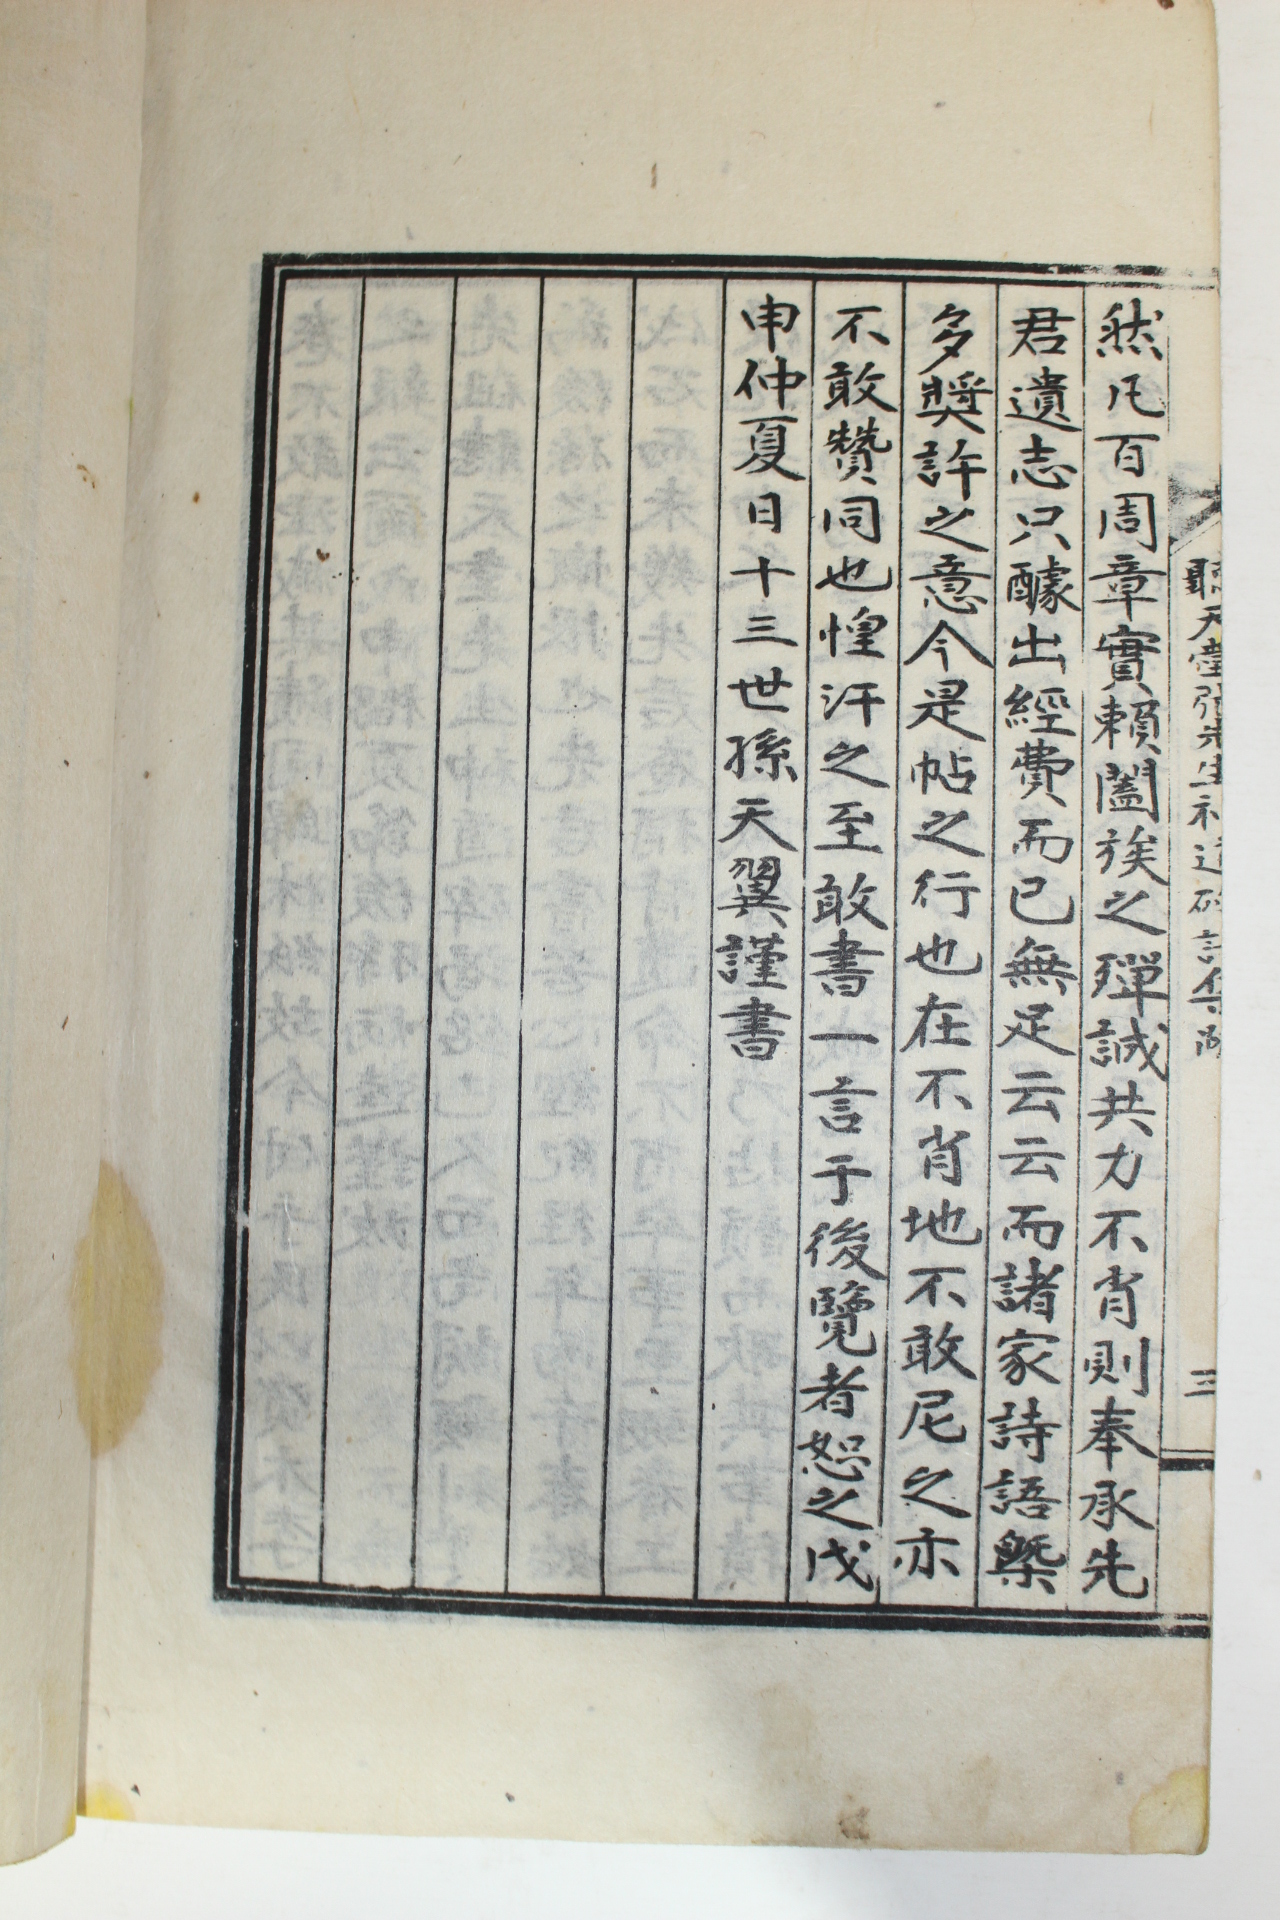 然凡百周章實賴闔族之殫誠共力不肖則奉承先
君遺志只醵出經費而已無足云云而諸家詩語槩
多奬許之意今是帖之行也在不肖地不敢尼之亦
不敢贊同也惶汗之至敢書一言于後覽者恕之戊
申仲夏日十三世孫天翼謹書
聽天堂張先生神道碑詩集
三